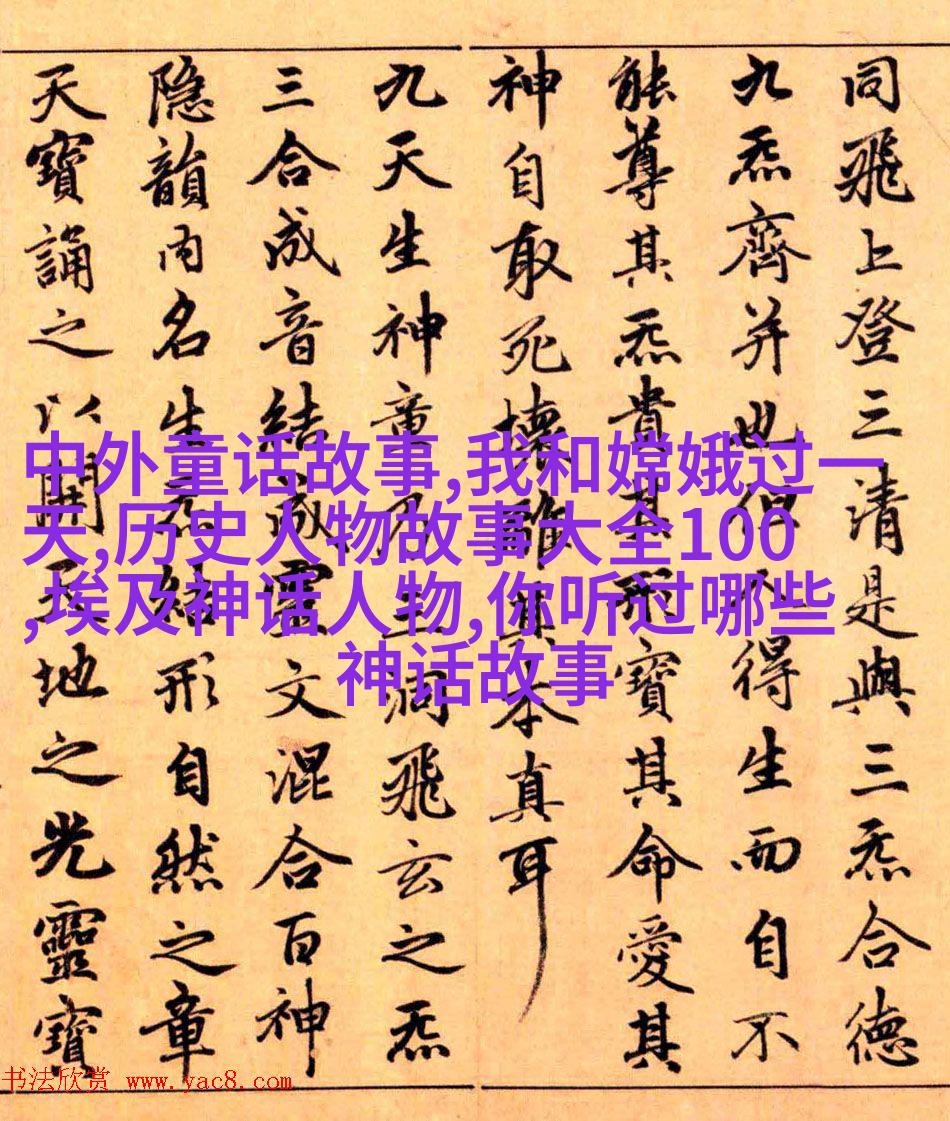 同飛上登三清是與三炁合德
九炁齊并也但得生而自不
能尊其炁貴其形寶其命愛其
神自取死壞離其本真耳
九天生神章乃三洞飛玄之炁
三合成音結成靈文混合百神
隐韻内名生炁結形自然之章
天寶誦之以開天地之光靈寶
中外童话故事,我和嫦娥过一
天,历史人物故事大全100
,埃及神话人物,你听过哪些
神话故事
书法欣赏 www.yac8.com